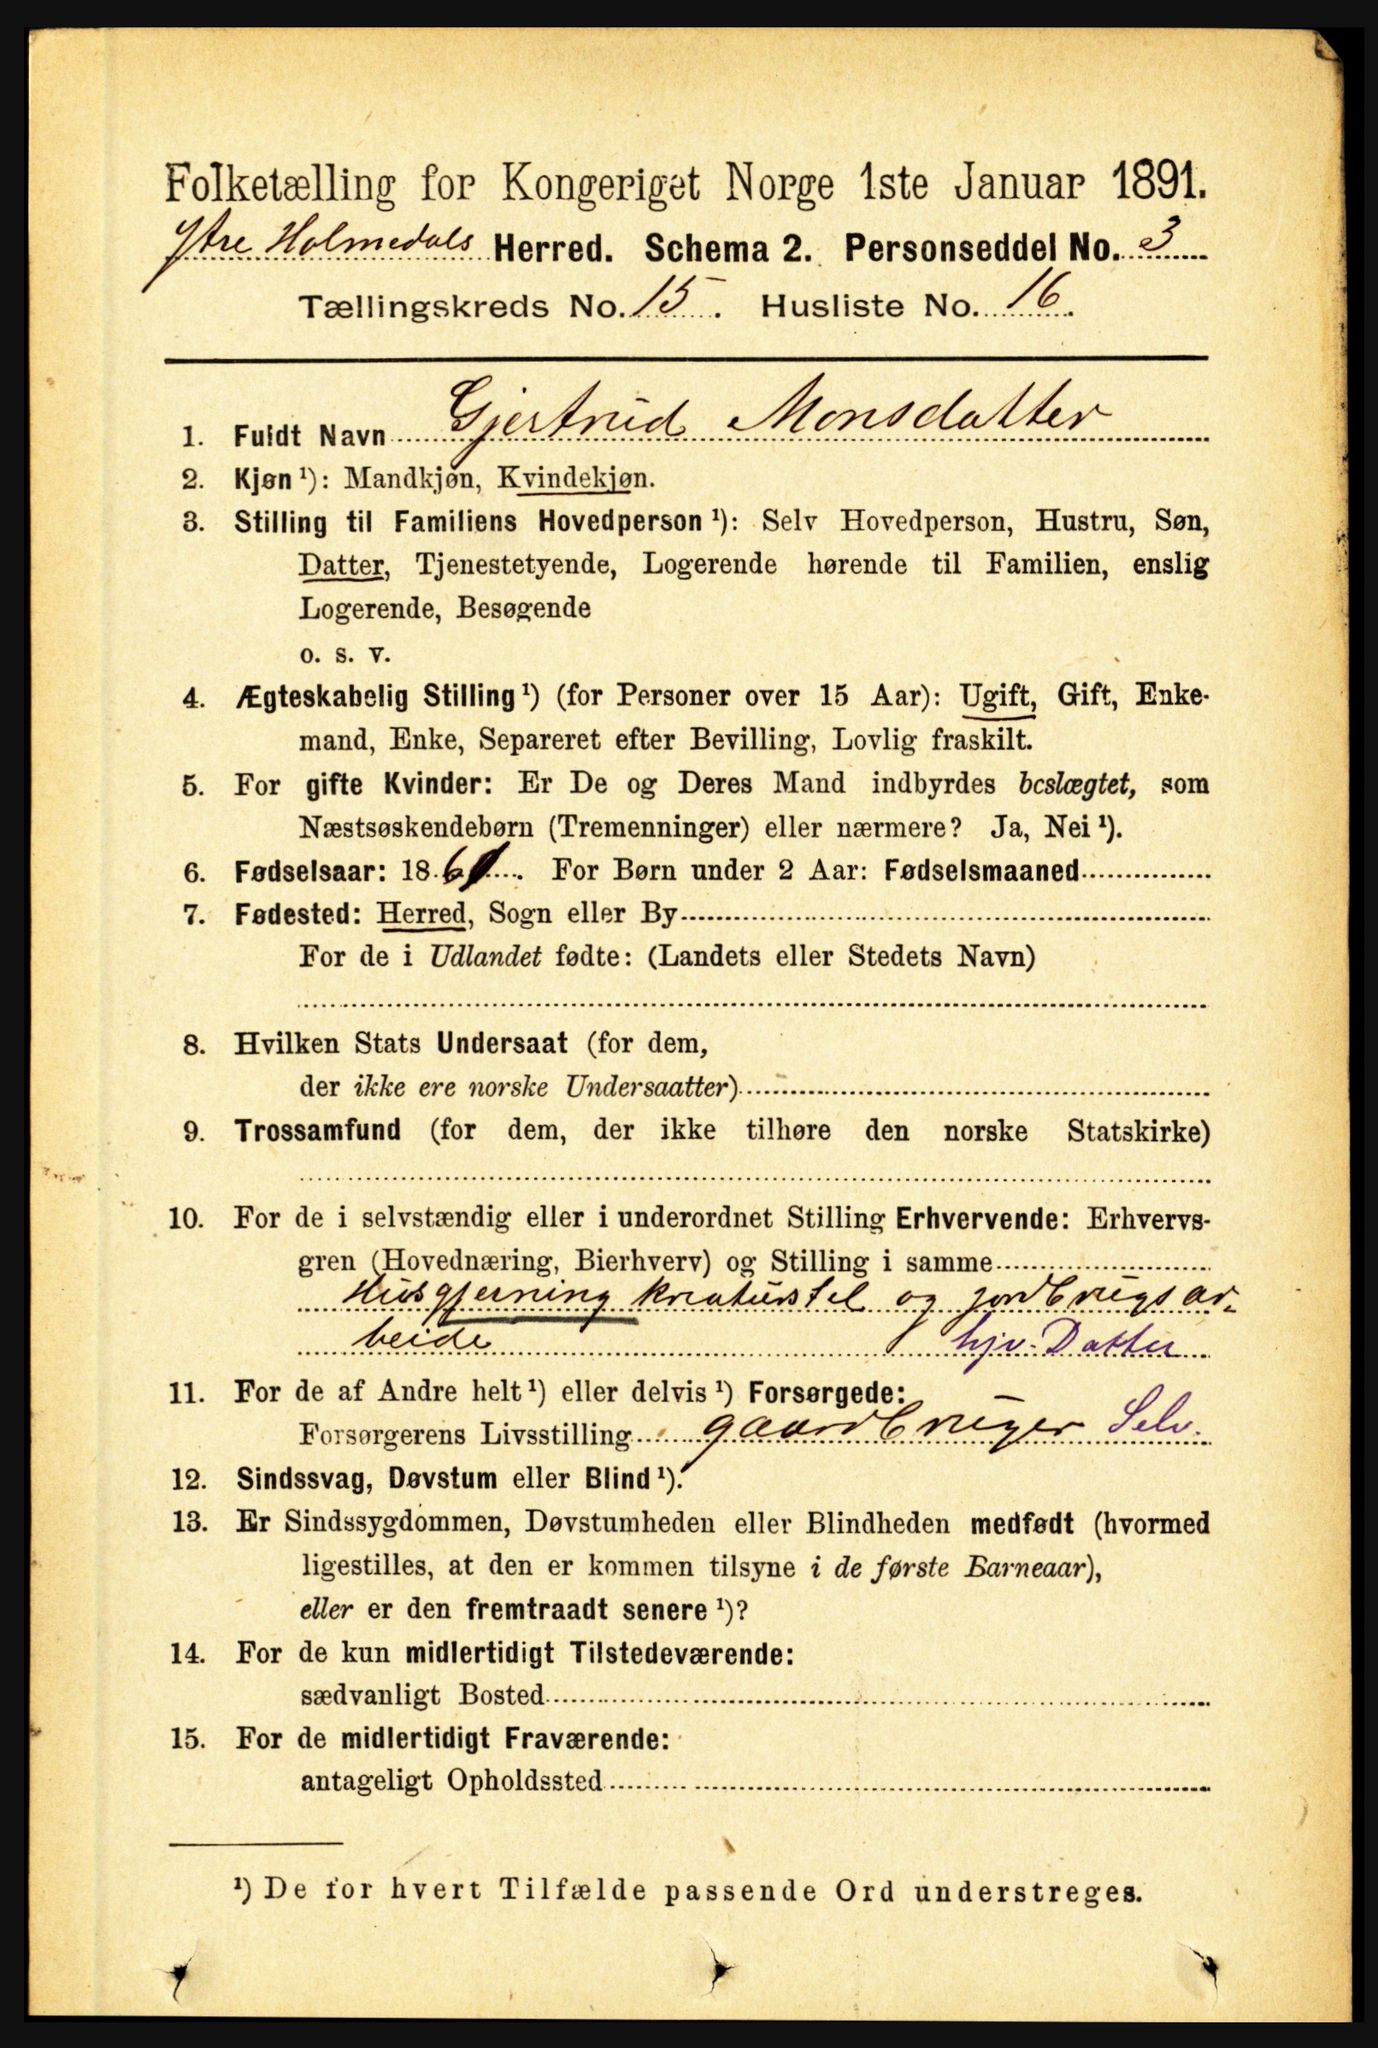 Folketælling for Kongeriget Norge 1ste Januar 1891.
Ytre Holmedals Herred. Schema 2. Personseddel No. 3
Tællingskreds No. 15. Husliste No. 16.
1. Fuldt Navn Gjertrud Monsdatter
2. Kjøn ¹): Mandkjøn, Kvindekjøn.
3. Stilling til Familiens Hovedperson ¹): Selv Hovedperson, Hustru, Søn,
Datter, Tjenestetyende, Logerende hørende til Familien, enslig
Logerende, Besøgende
o. s. v.
4. Ægteskabelig Stilling ¹) (for Personer over 15 Aar): Ugift, Gift, Enke-
mand, Enke, Separeret efter Bevilling, Lovlig fraskilt.
5. For gifte Kvinder: Er De og Deres Mand indbyrdes beslægtet, som
Næstsøskendebørn (Tremenninger) eller nærmere? Ja, Nei ¹).
6. Fødselsaar: 1861. For Børn under 2 Aar: Fødselsmaaned
7. Fødested: Herred, Sogn eller By
For de i Udlandet fødte: (Landets eller Stedets Navn)
8. Hvilken Stats Undersaat (for dem,
der ikke ere norske Undersaatter)
9. Trossamfund (for dem, der ikke tilhøre den norske Statskirke)
10. For de i selvstændig eller i underordnet Stilling Erhvervende: Erhvervs-
gren (Hovednæring, Bierhverv) og Stilling i samme
Husgjerning kreaturstel og jordbrugsar-
beide hjv. Datter
11. For de af Andre helt ¹) eller delvis ¹) Forsørgede:
Forsørgerens Livsstilling gaardbruger Selv.
12. Sindssvag, Døvstum eller Blind ¹).
13. Er Sindssygdommen, Døvstumheden eller Blindheden medfødt (hvormed
ligestilles, at den er kommen tilsyne i de første Barneaar),
eller er den fremtraadt senere ¹)?
14. For de kun midlertidigt Tilstedeværende:
sædvanligt Bosted
15. For de midlertidigt Fraværende:
antageligt Opholdssted
¹) De for hvert Tilfælde passende Ord understreges.